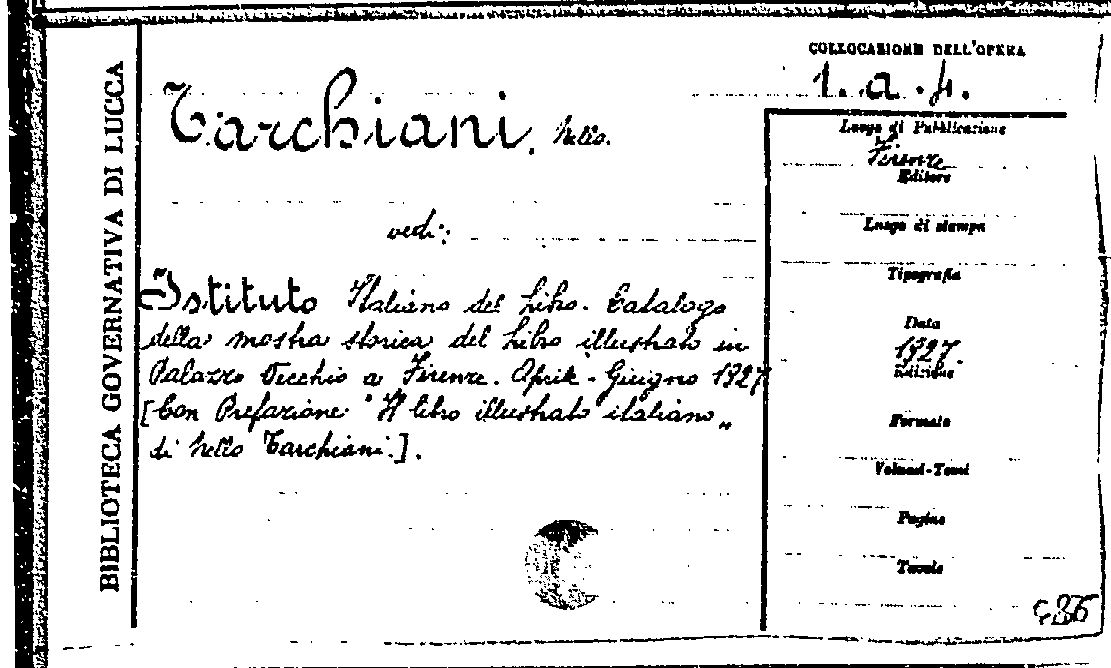 BIBLIOTECA GOVERNATIVA DI LUCCA
COLLOCAZIONE DELL'OPERA
1. a. 4.
Tarchiani, Nello.
vedi:
Istituto Italiano del Libro. Catalogo
della mostra storica del Libro illustrato in
Palazzo Vecchio a Firenze. Aprile - Giugno 1927
[Con Prefazione "Il libro illustrato italiano„
di Nello Tarchiani.].
Luogo di Pubblicazione
Firenze
Editore
Luogo di stampa
Tipografia
Data
1927.
Edizione
Formato
Volumi-Tomi
Pagine
Tavole